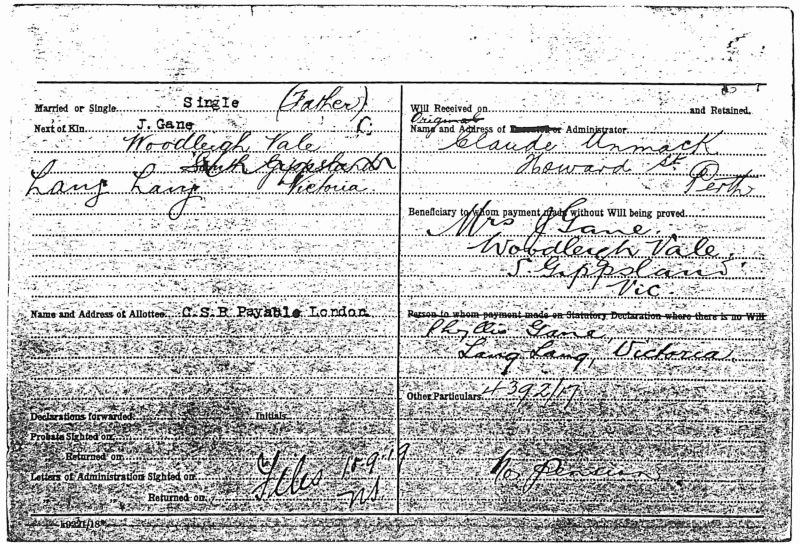 Married or Single Single (Father)
Next of Kin J. Gane C
Woodleigh Vale
South Gippsland
Lang Lang Victoria
Name and Address of Allottee C.S.B Payable London
Declarations forwarded Initials
Probate Sighted on
Returned on
Letters of Administration Sighted on
Returned on
Files 15-9-19
Will Received on and Retained.
Original
Name and Address of Executor or Administrator.
Claude Unmack
Howard St
Perth
Beneficiary to whom payment made without Will being proved
Mrs J Gane
Woodleigh Vale
S. Gippsland
Vic.
Person to whom payment made on Statutory Declaration where there is no Will
Phyllis Gane
Lang Lang, Victoria
Other Particulars 4392/17
No pension